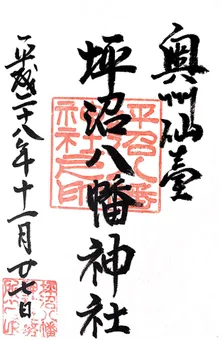 奥州仙臺
坪沼八幡神社
平成二十八年十一月廿七日